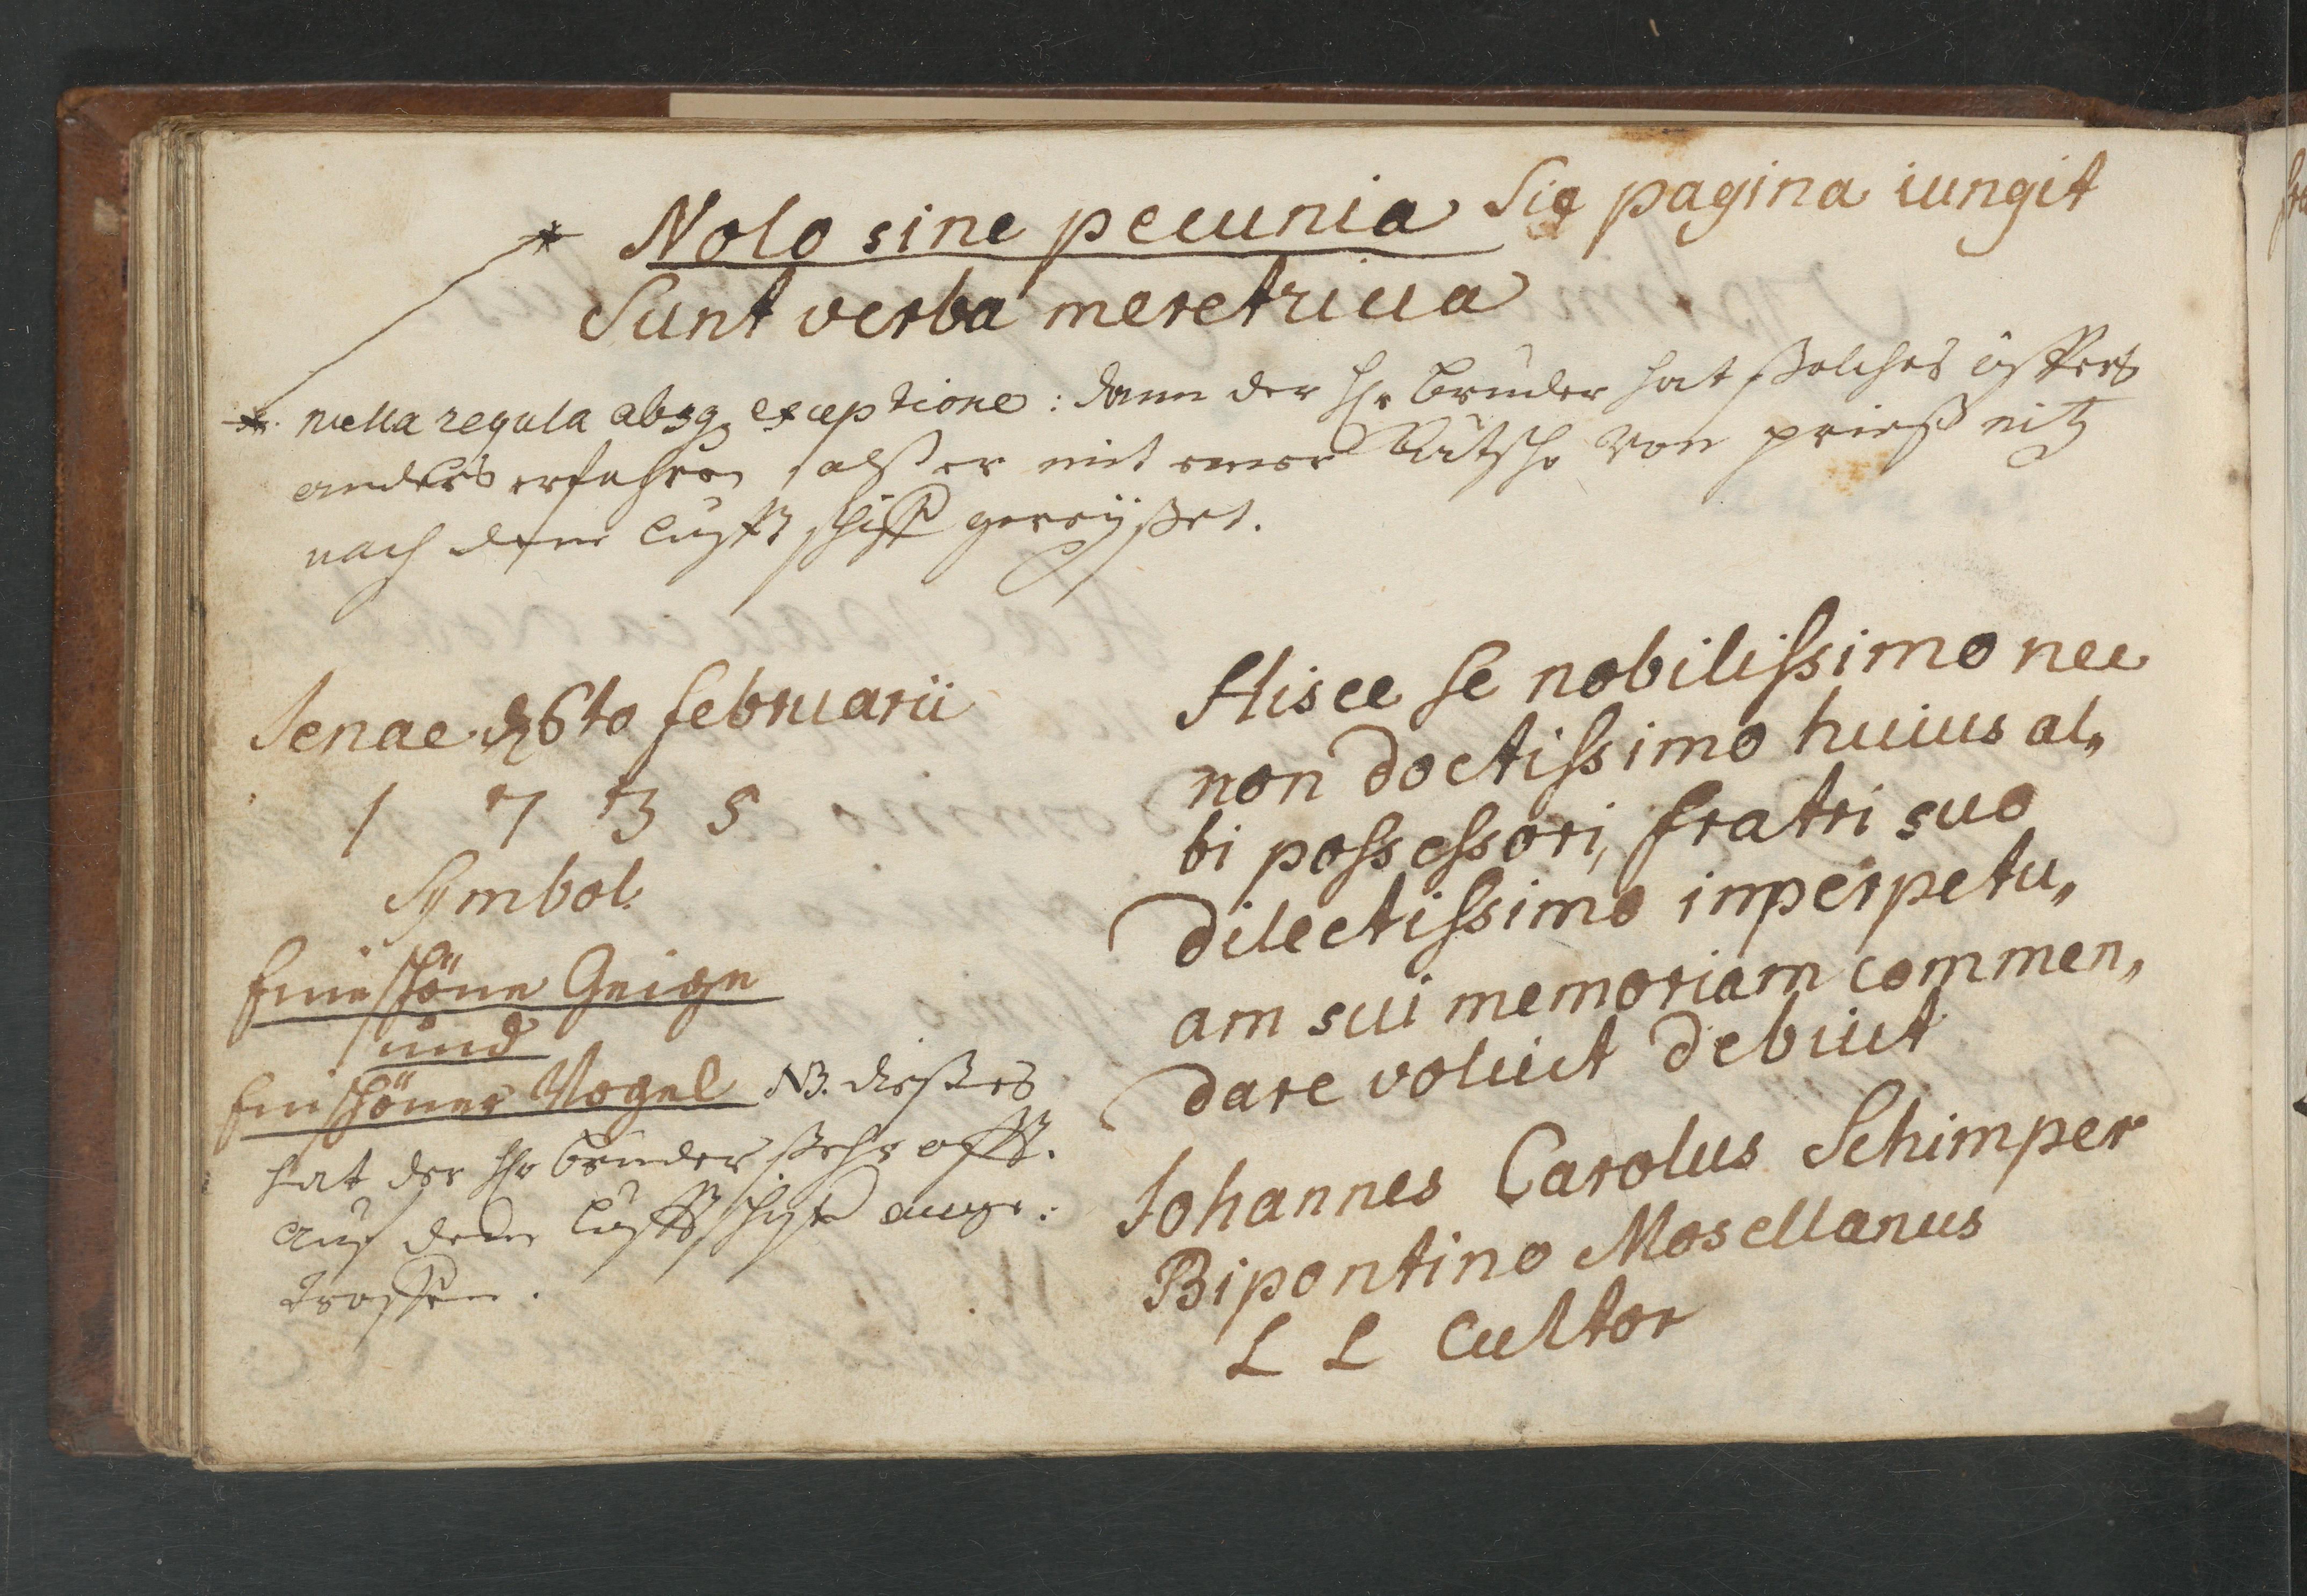 * Nolo sine pecunia Sic pagina iungit
Sunt verba meretricia
* nulla regula absq exceptione: dann der Hr bruder hat ßolches öffters
anders erfahren, alß er mit einer Kutsche von prießnitz
nach dem lufft schiff gereyßet.
Jenae d 6to februarii
1 7 3 5
Symbol:
Eine schöne Geige
und
Ein schöner Vogel NB. dießes
hat der Hr bruder ßehr offt.
auf dem lufftschiff ange:
troffen.
Hisce se nobilissimo nec
non doctissimo huius al„
bi possessori, fratri suo
dilectissimo inperpetu„
am sui memoriam commen„
dare voluit debuit
Johannes Carolus Schimper
Bipontino Mosellanus
L L Cultor